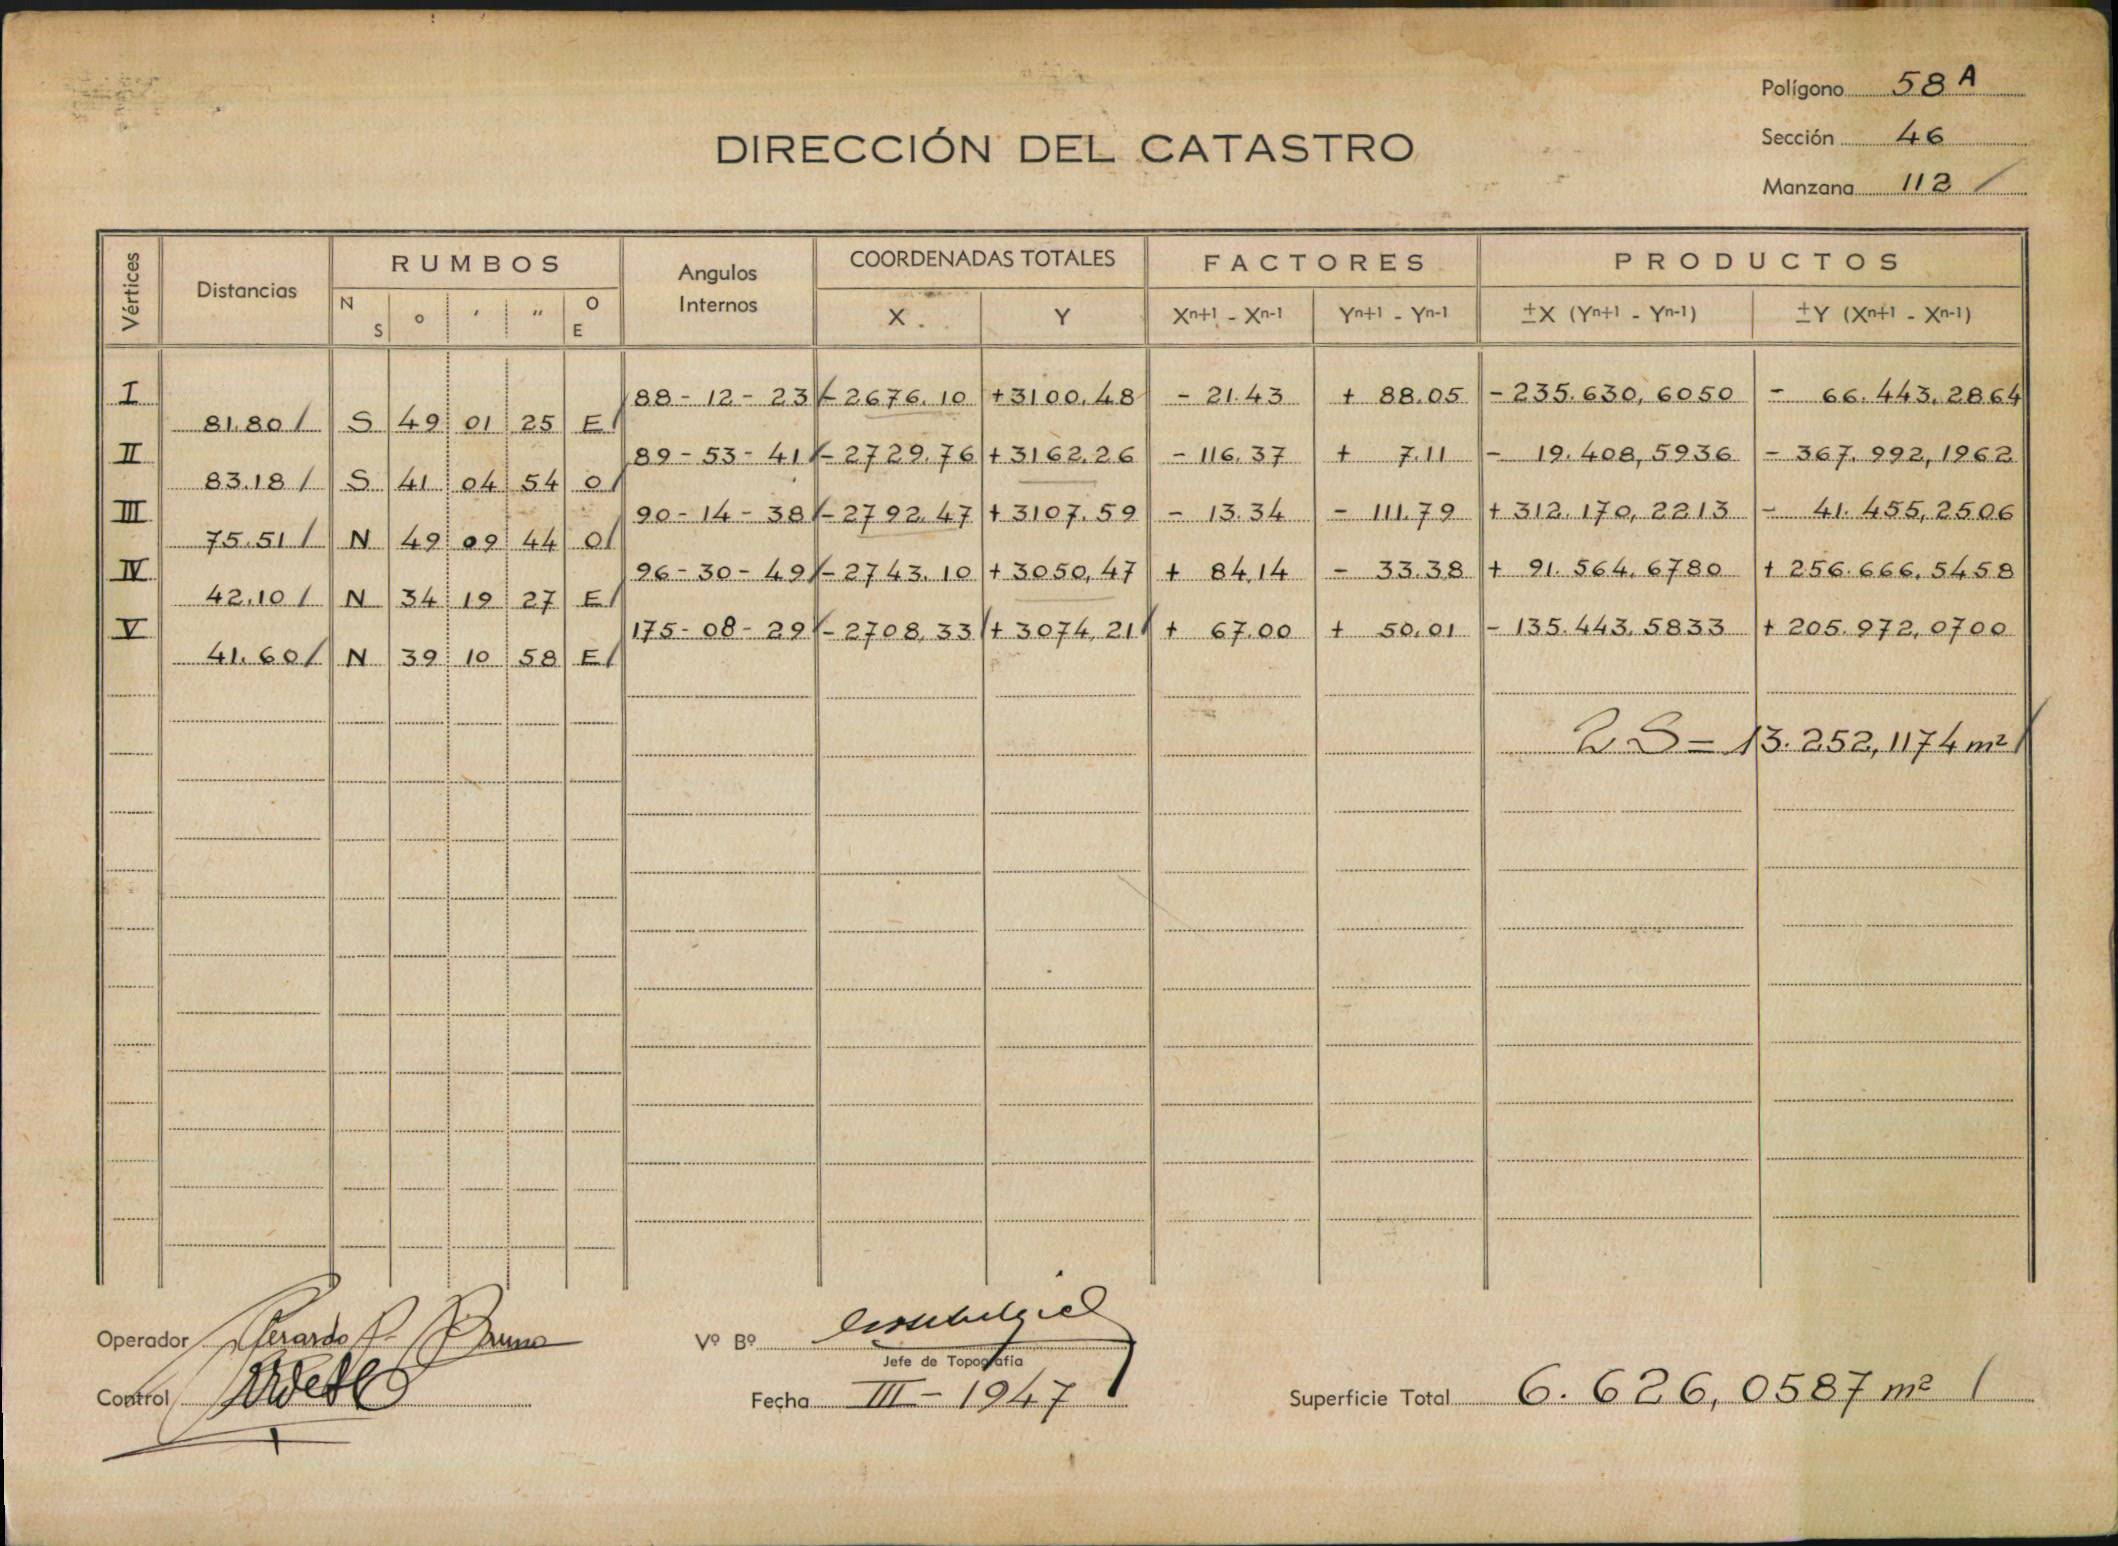 Polígono 58 A
Sección 46
Manzana 112 /
DIRECCIÓN DEL CATASTRO
Vértices Distancias RUMBOS Angulos Internos COORDENADAS TOTALES FACTORES PRODUCTOS
N S o ′ ″ O E X Y Xn+1 - Xn-1 Yn+1 - Yn-1 ±X (Yn+1 - Yn-1) ±Y (Xn+1 - Xn-1)
I 88 - 12 - 23 / - 2676.10 +3100.48 - 21.43 + 88.05 - 235.630,6050 - 66.443,2864
81.80 / S 49 01 25 E /
II 89 - 53 - 41 / - 2729.76 + 3162.26 - 116.37 + 7.11 - 19.408,5936 - 367.992,1962
83.18 / S 41 04 54 O /
III 90 - 14 - 38 / - 2792.47 + 3107.59 - 13.34 - 111.79 + 312.170,2213 - 41.455,2506
75.51 / N 49 09 44 O /
IV 96 - 30 - 49 / - 2743.10 + 3050,47 + 84,14 - 33.38 + 91.564,6780 + 256.666,5458
42.10 / N 34 19 27 E /
V 175 - 08 - 29 / - 2708,33 / + 3074,21 / + 67.00 + 50.01 - 135.443,5833 + 205.972,0700
41.60 / N 39 10 58 E /
2 S = 13.252,1174 m² /
Operador Gerardo P. Bruno
Vº Bº
Jefe de Topografía
Control
Fecha III - 1947
Superficie Total 6.626,0587 m² /